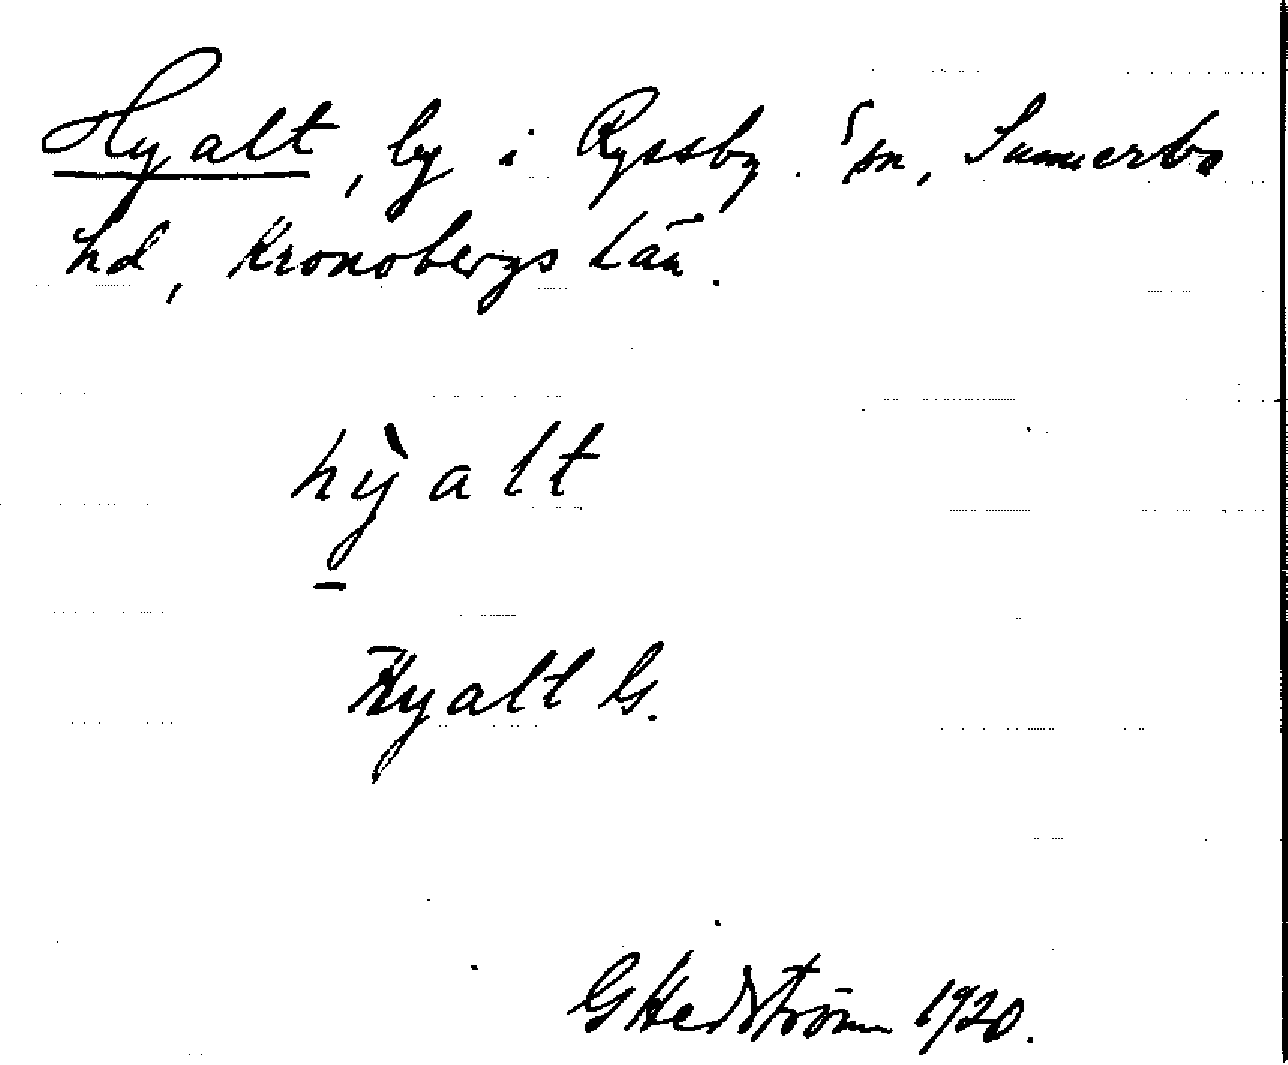 Hyalt, by i Ryssby sn, Sunnerbo
hd, Kronobergs län.
hỳalt
Hyalt G.
G Hedström 1920.